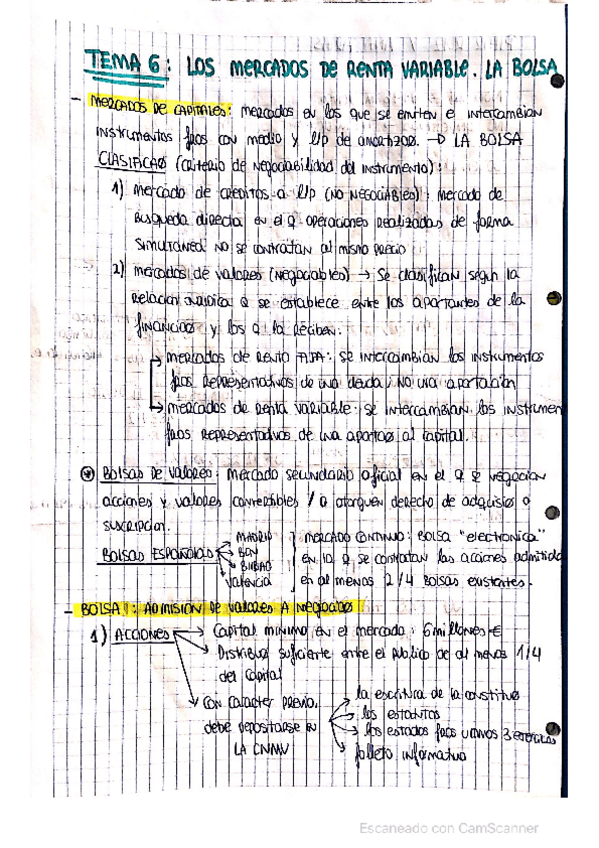 TEMA 6: LOS MERCADOS DE RENTA VARIABLE. LA BOLSA
- MERCADOS DE CAPITALES: mercados en los que se emiten e intercambian
instrumentos fros con medio y l/p de amortizao. → LA BOLSA
CLASIFICAO (criterio de negociabilidad del instrumento):
1) mercado de créditos a l/p (NO NEGOCIABLES): mercado de
busqueda directa en el q operaciones realizadas de forma
simultanea no se contratan al mismo precio
2) mercados de valores (negociables) → Se clasifican según la
relacion juridica q se establece entre los aportantes de la
financiao y los q la reciben:
→ mercados de renta FIJA: se intercambian los instrumentos
fros representativos de una deuda, NO una aportacion
→ mercados de renta variable: se intercambian los instrumen
fros representativos de una aportao al capital.
* Bolsas de valores: mercado secundario oficial en el q se negocian
acciones y valores convertibles / q otorguen derecho de adquisio o
suscripcion.
BOLSAS ESPAÑOLAS
MADRID
BCN
BILBAO
Valencia
MERCADO CONTINUO: Bolsa "electronica"
en la q se contratan las acciones admitida
en al menos 2/4 bolsas existentes.
- BOLSA: ADMISION de valores A negociao
1) ACCIONES
→ Capital minimo en el mercado: 6 millones €
→ Distribuo suficiente entre el publico de al menos 1/4
del capital
→ con caracter previo,
debe depositarse en
LA CNMV
la escritura de la constituo
los estatutos
los estados fros ultimos 3
folleto informativo
Escaneado con CamScanner